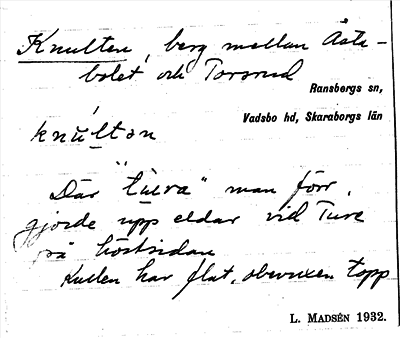 Knulten, berg mellan Åsta-
bolet och Torsrud
Ransbergs sn,
Vadsbo hd, Skaraborgs län
knúltən
Där "túrva" man förr,
gjorde upp eldar vid Ture
på höstsidan
Kullen har flat, obevuxen topp
L. MADSÉN 1932.